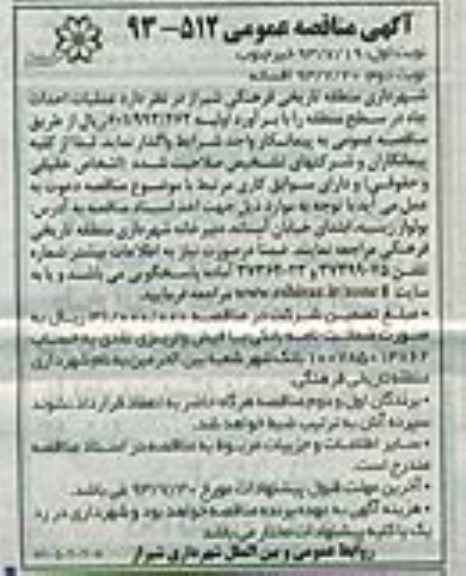 آگهی مناقصه عمومی ۵۱۲-۹۳
نوبت اول: ۹۳/۷/۱۹ خبر جنوب
نوبت دوم: ۹۳/۷/۲۰ افسانه
شهرداری منطقه تاریخی فرهنگی شیراز در نظر دارد عملیات احداث
چاه در سطح منطقه را با برآورد اولیه ریال از طریق
مناقصه عمومی به پیمانکار واجد شرایط واگذار نماید. لذا از کلیه
پیمانکاران و شرکتهای تشخیص صلاحیت شده (اشخاص حقیقی
و حقوقی) و دارای سوابق کاری مرتبط با موضوع مناقصه دعوت به
عمل می آید با توجه به موارد ذیل جهت اخذ اسناد مناقصه به آدرس:
بولوار زینبیه، ابتدای خیابان آستانه، دبیرخانه شهرداری منطقه تاریخی
فرهنگی مراجعه نمایند. ضمناً در صورت نیاز به اطلاعات بیشتر شماره
تلفن آماده پاسخگویی می باشند و یا به
سایت مراجعه فرمایید.
• مبلغ تضمین شرکت در مناقصه ریال به
صورت ضمانت نامه بانکی یا فیش واریزی نقدی به حساب
بانک شهر شعبه بین الحرمین به نام شهرداری
منطقه تاریخی فرهنگی.
• برندگان اول و دوم مناقصه هرگاه حاضر به انعقاد قرارداد نشوند
سپرده آنان به ترتیب ضبط خواهد شد.
• سایر اطلاعات و جزییات مربوط به مناقصه در اسناد مناقصه
مندرج است.
• آخرین مهلت قبول پیشنهادات مورخ ۹۳/۷/۳۰ می باشد.
• هزینه آگهی به عهده برنده مناقصه خواهد بود و شهرداری در رد
یک یا کلیه پیشنهادات مختار می باشد
روابط عمومی و بین الملل شهرداری شیراز